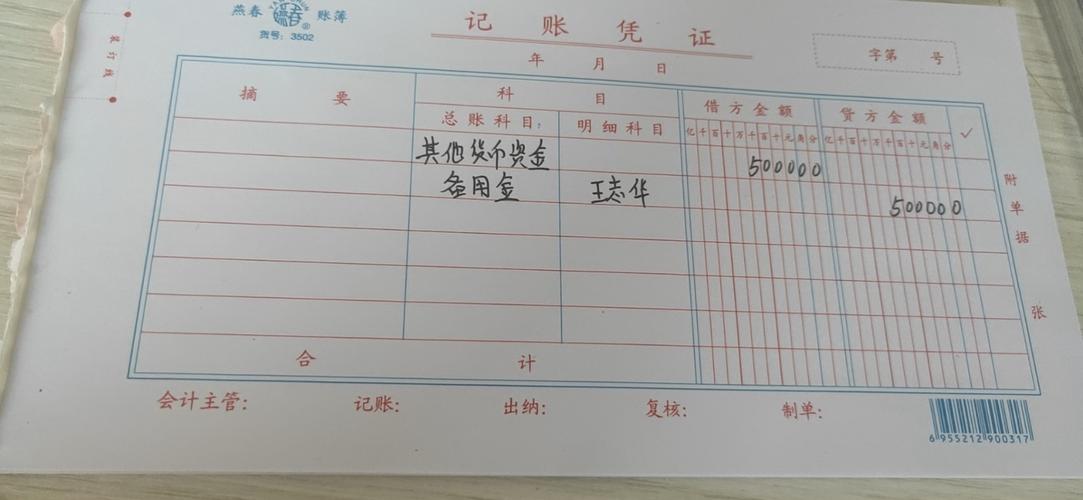 燕春 账簿
货号：3502
装订线
记账凭证
年 月 日
字第 号
摘要 科目 借方金额 贷方金额 ✓
总账科目 明细科目 亿千百十万千百十元角分 亿千百十万千百十元角分
其他货币资金 500000
备用金 王志华 500000
合计
附单据 张
会计主管： 记账： 出纳： 复核： 制单：
6 955212 900317